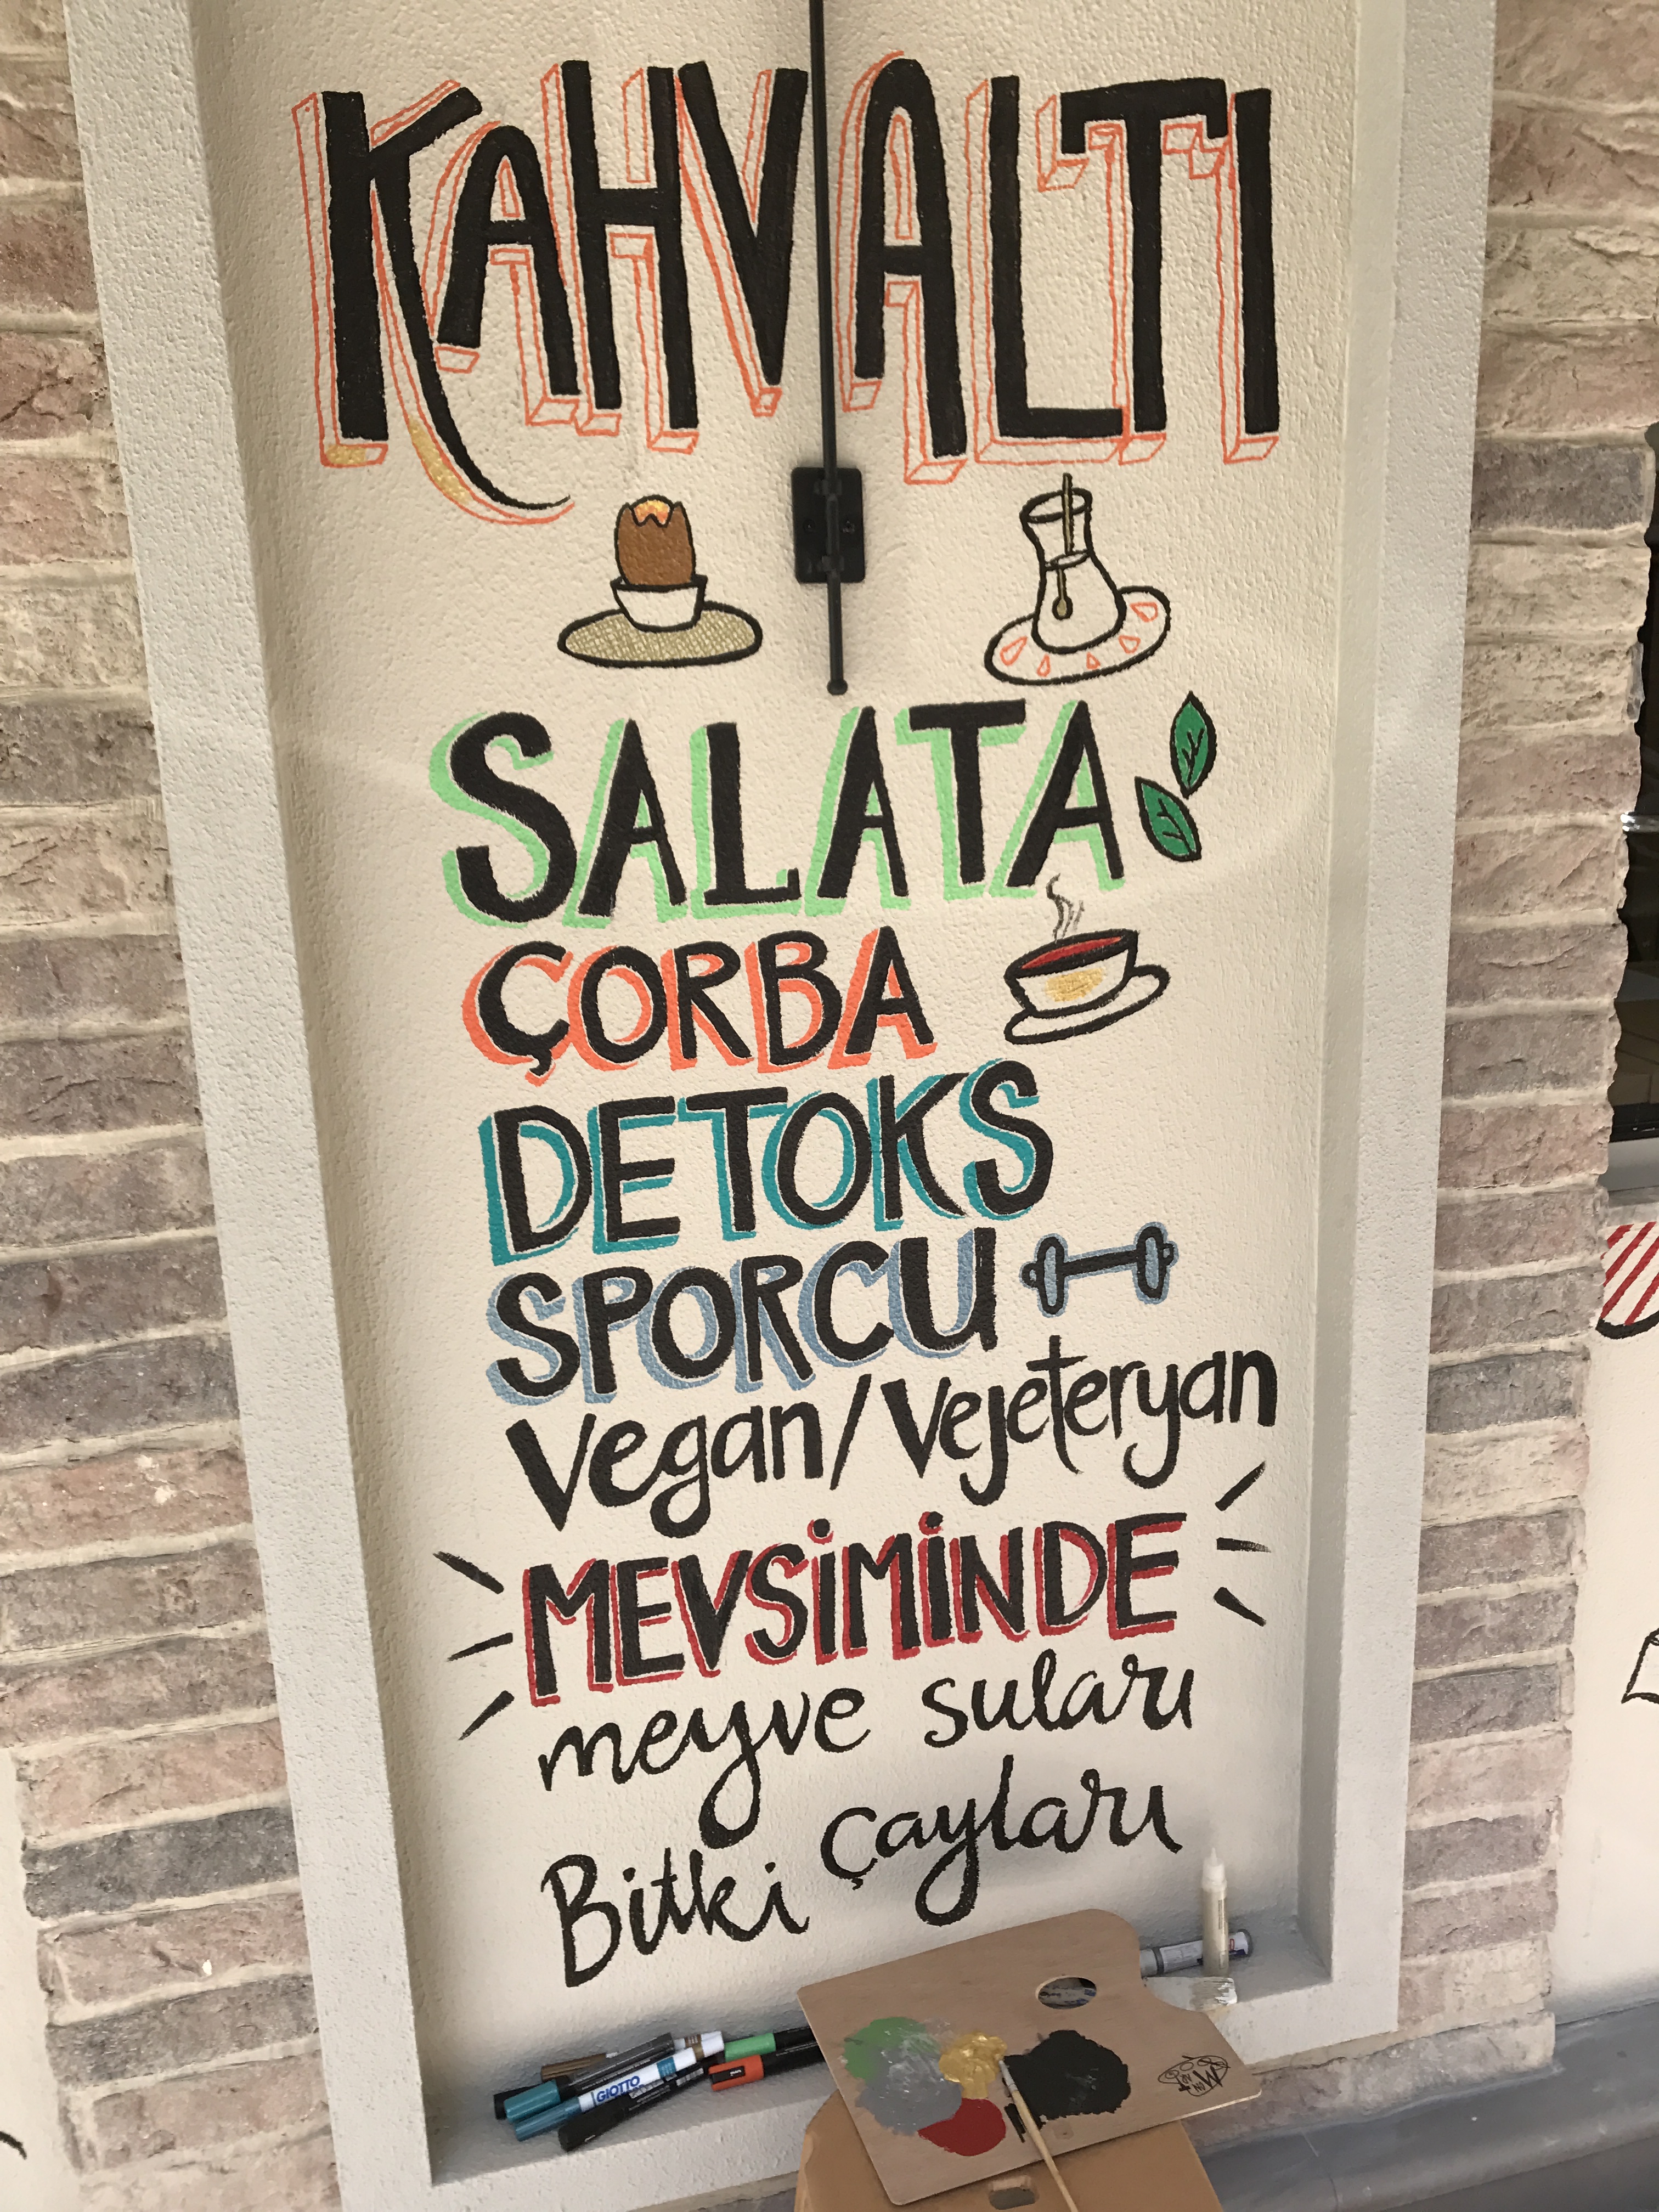 KAHVALTI
SALATA
ÇORBA
DETOKS
SPORCU
Vegan/Vejeteryan
MEVSİMİNDE
meyve suları
Bitki çayları
GIOTTO